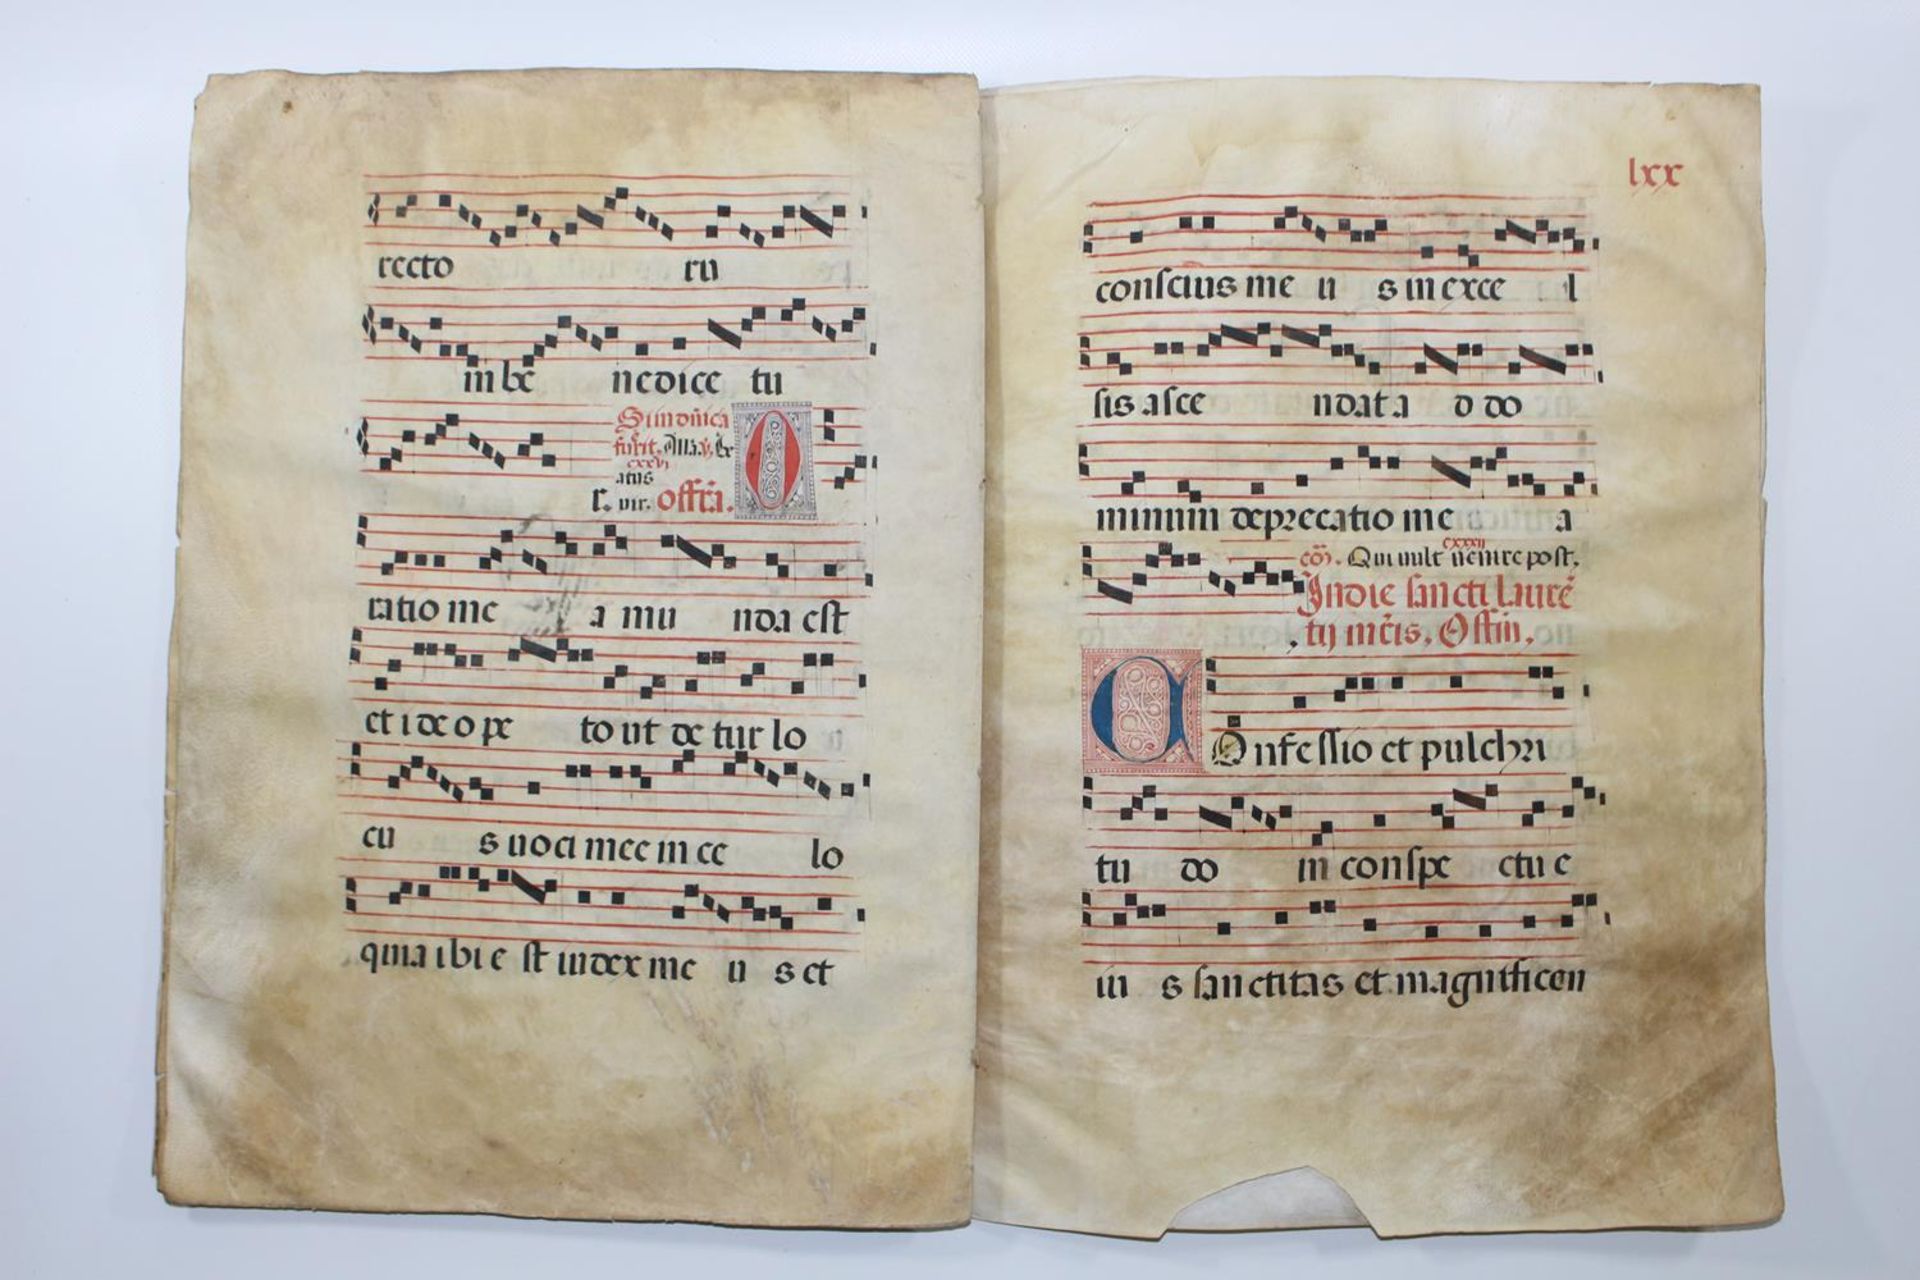 recto rū
in be nedice tu
Si in dn̄ica
fuerit. Alla. ꝟ.
cxxvi
atus
r. vir. offrā. O
ratio me a mu nda est
et i de o pe to ut de tur lo
cu s uoci mee in ce lo
quia ibi e st iudex me u s et
lxx
conscius me u s in exce l
sis asce ndat a d do
minum deprecatio me a
cxxxii
cōō. Qui uult uenire post.
In die sancti laurē
tij mr̄is. Offm̄.
C Onfessio et pulchri
tu do in conspe ctu e
iu s sanctitas et magnificen